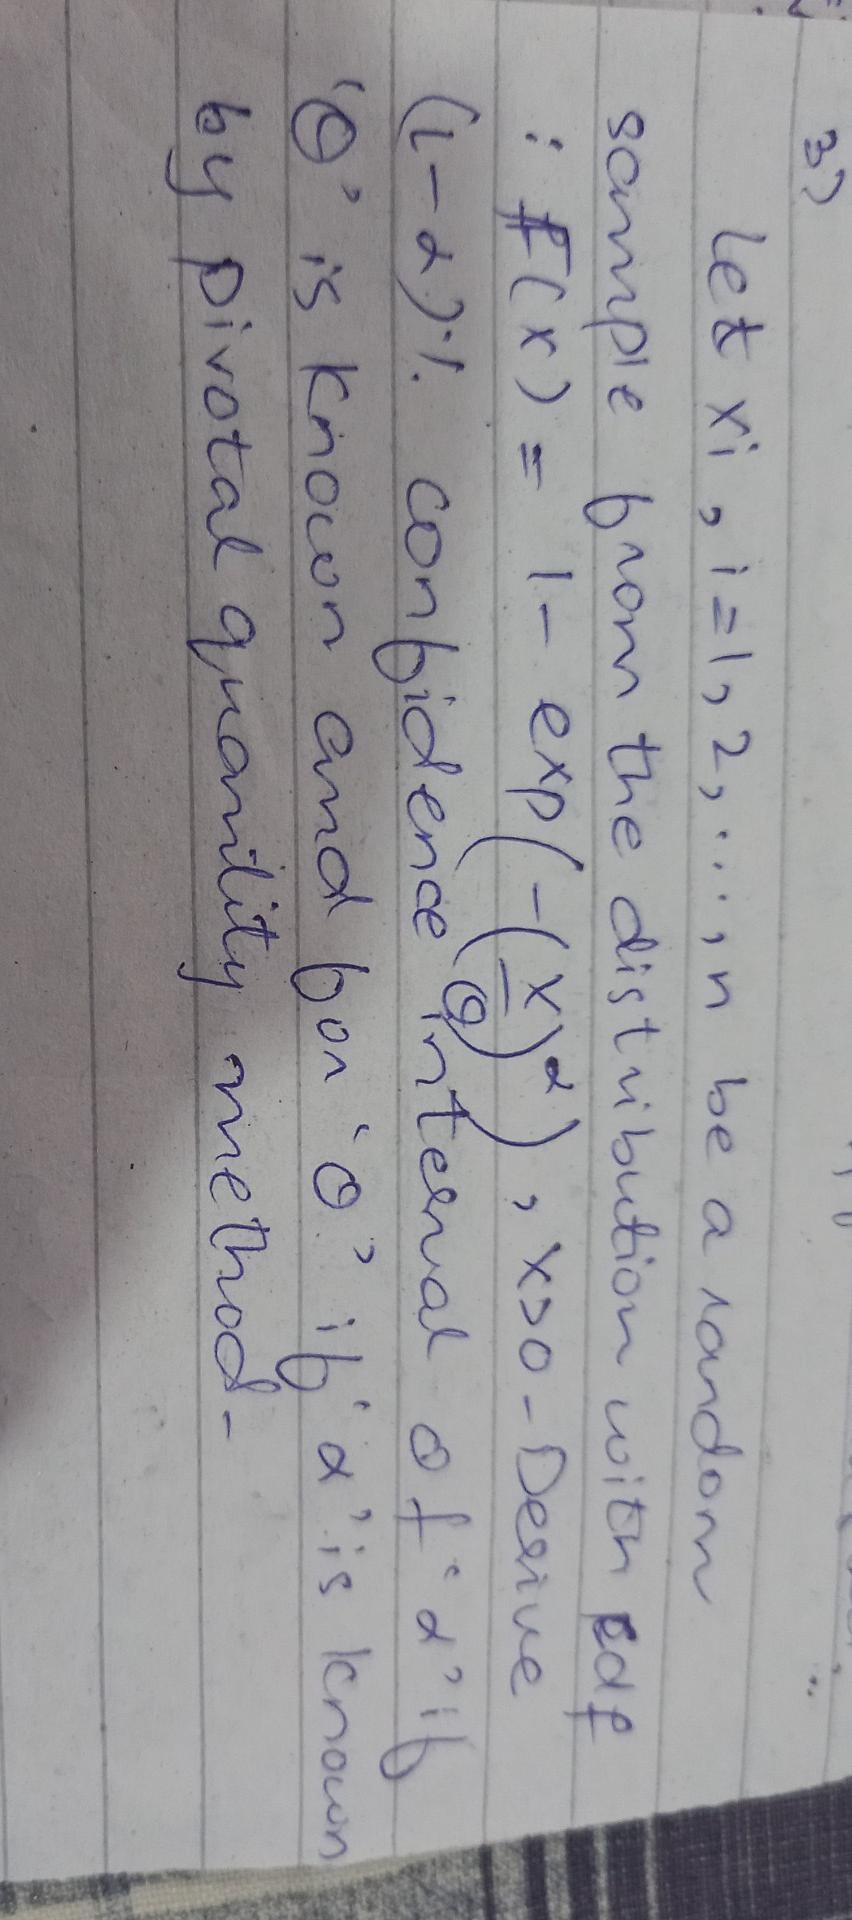 3)
Let xi, i=1, 2, ..., n be a random
sample from the distribution with cdf
: F(x) = 1 - exp(-(x/θ)^α), x>0 - Derive
(1-α)% confidence interval of 'α' if
'θ' is known and for 'θ' if 'α' is known
by pivotal quantity method.